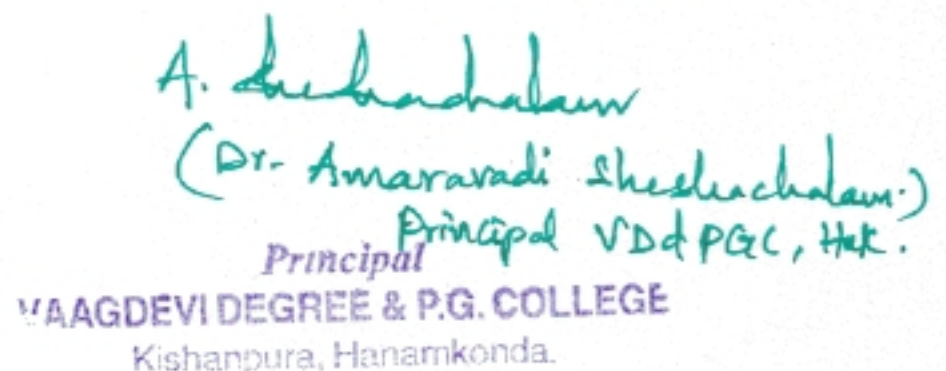 A. Sheshachalam
(Dr. Amaravadi Sheshachalam.)
Principal VD & PGC, Hnk.
Principal
VAAGDEVI DEGREE & P.G. COLLEGE
Kishanpura, Hanamkonda.